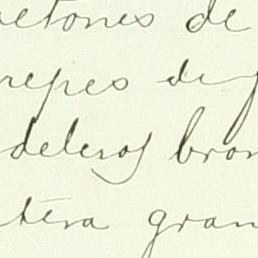 etones de
repes de
deleros bron
tera gran